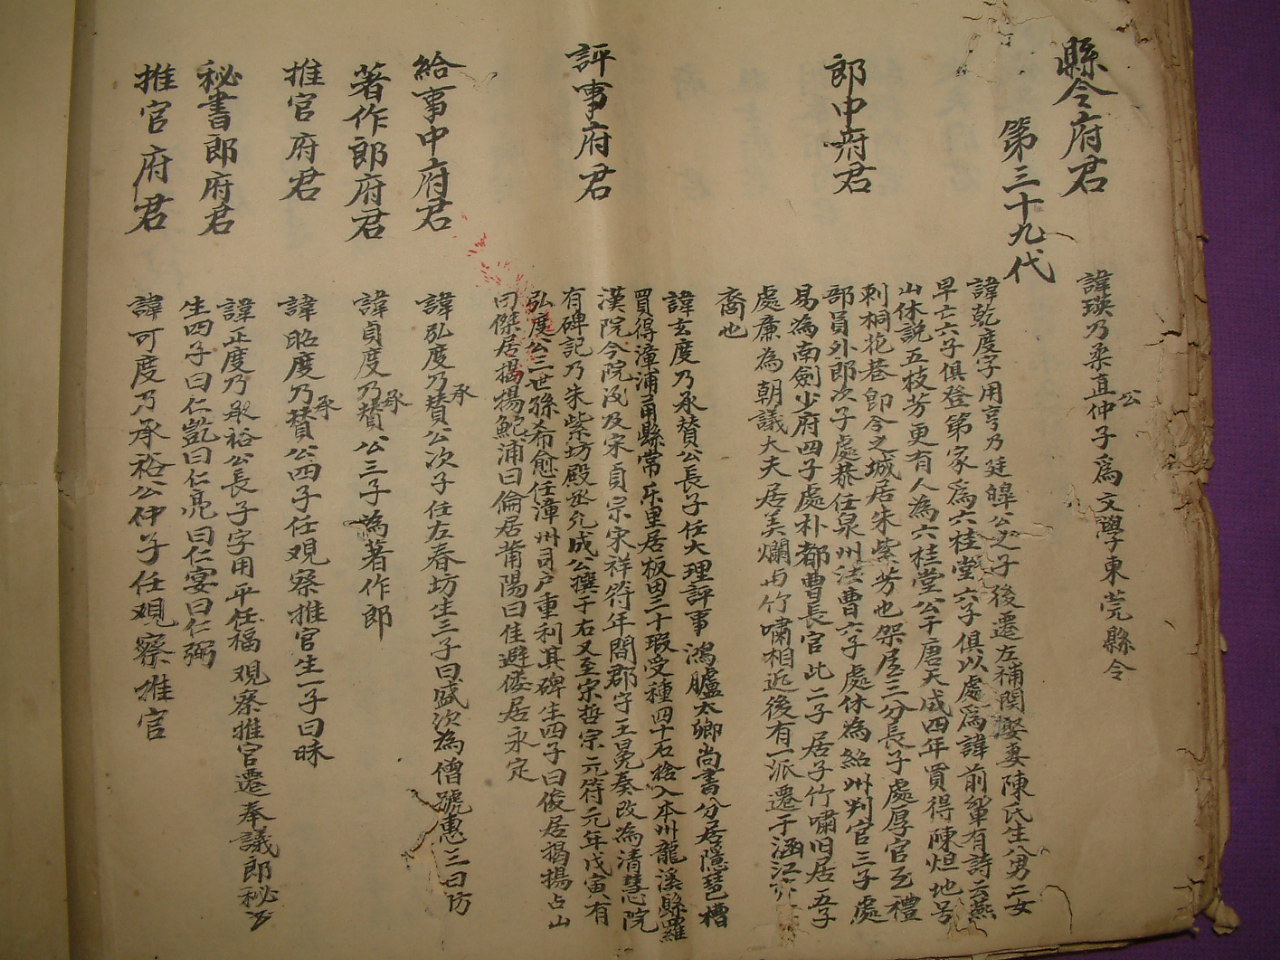 縣令府君
諱瑛乃柔直公仲子爲文學東莞縣令
第三十九代
郎中府君
諱乾度字用亨乃廷皞公之子後遷左補闕娶妻陳氏生八男二女
早亡六子俱登第家爲六桂堂六子俱以處爲諱前輩有詩云燕
山休説五枝芳更有人為六桂堂公于唐天成四年買得陳烜地号
刺桐花巷即今之城居朱紫芳也架屋三分長子處厚官至禮
部員外郎次子處恭任泉州法曹六子處休為紹州判官三子處
易為南劍少府四子處朴都曹長官此二子居子竹嘯旧居五子
處廉為朝議大夫居美爛与竹嘯相近後有一派遷于涵江
裔也
評事府君
諱玄度乃承贊公長子任大理評事鴻臚太卿尚書分居隱琵琶槽
買得漳浦甬縣常乐里居板田三十瑕受種四十石捨入本州龍溪縣羅
漢院今院没及宋真宗宋祥符年間郡守王冕奏改為清慧院
有碑記乃朱紫坊殿丞允成公撰于右又至宋哲宗元符元年戊寅有
弘度公三世孫希愈任漳州司户重利其碑生四子曰俊居揭揚占山
曰傑居揭揚鮀浦曰倫居莆陽曰佳避倭居永定
給事中府君
諱弘度乃承贊公次子任左春坊生三子曰盛次為僧號惠三曰坊
著作郎府君
諱貞度乃承贊公三子為著作郎
推官府君
諱昭度乃承贊公四子任覌察推官生一子曰昧
秘書郎府君
諱正度乃承裕公長子字用平任福覌察推官遷奉議郎秘
生四子曰仁凱曰仁亮曰仁宴曰仁弼
推官府君
諱可度乃承裕公仲子任覌察推官